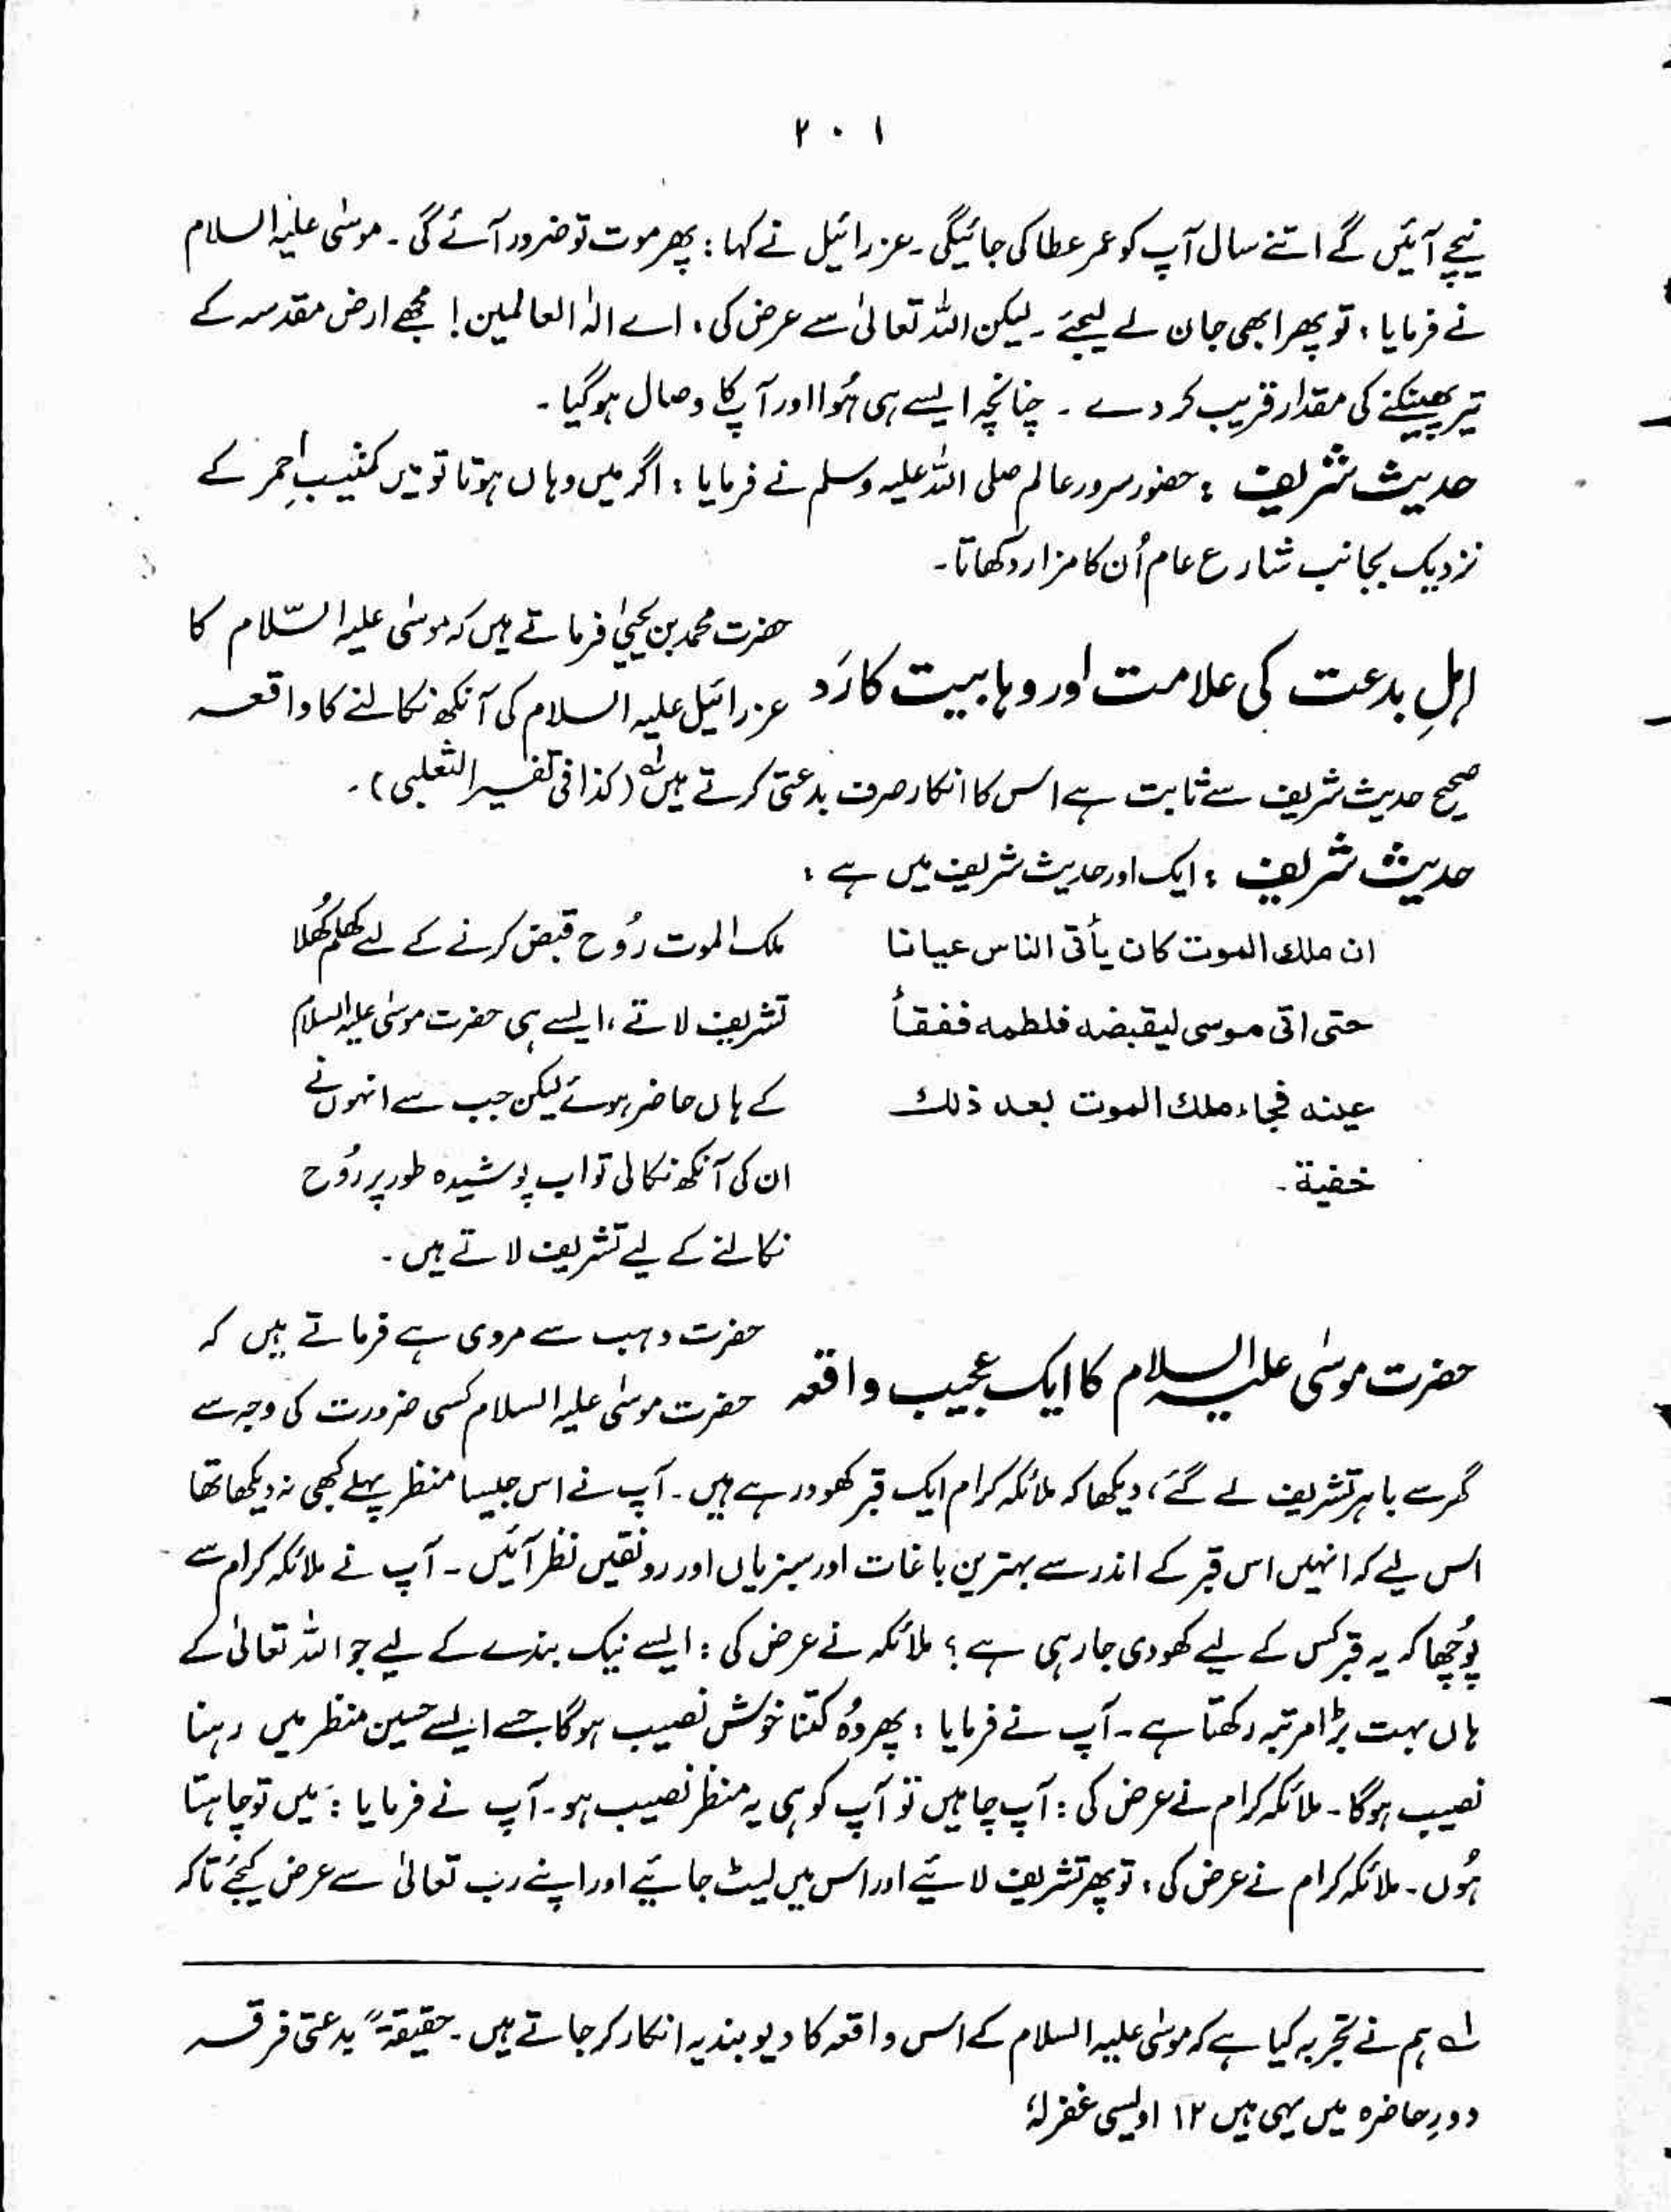 ۲۰۱
نیچے آئیں گے اتنے سال آپ کو عمر عطا کی جائیگی۔ عزرائیل نے کہا: پھر موت تو ضرور آئے گی۔ موسٰی علیہ السلام
نے فرمایا: تو پھر ابھی جان لے لیجئے۔ لیکن اللہ تعالیٰ سے عرض کی، اے الٰہ العالمین! مجھے ارض مقدسہ کے
تیر پھینکنے کی مقدار قریب کر دے۔ چنانچہ ایسے ہی ہُوا اور آپ کا وصال ہوگیا۔
حدیث شریف: حضور سرور عالم صلی اللہ علیہ وسلم نے فرمایا: اگر میں وہاں ہوتا تو تمہیں کثیبِ احمر کے
نزدیک بجانب شارع عام اُن کا مزار دکھاتا۔
اہلِ بدعت کی علامت اور وہابیت کا رَد
حضرت محمد بن یحییٰ فرماتے ہیں کہ موسٰی علیہ السّلام کا
عزرائیل علیہ السلام کی آنکھ نکالنے کا واقعہ
صحیح حدیث شریف سے ثابت ہے اس کا انکار صرف بدعتی کرتے ہیں لہ (کذا فی تفسیر الثعلبی)۔
حدیث شریف: ایک اور حدیث شریف میں ہے:
ان ملك الموت كان يأتى الناس عيانا
حتى اتى موسى ليقبضه فلطمه ففقأ
عينه فجاء ملك الموت بعد ذلك
خفية۔
ملک الموت رُوح قبض کرنے کے لیے کھلم کُھلا
تشریف لاتے، ایسے ہی حضرت موسٰی علیہ السلام
کے ہاں حاضر ہوئے لیکن جب سے انہوں نے
ان کی آنکھ نکالی تو اب پوشیدہ طور پر رُوح
نکالنے کے لیے تشریف لاتے ہیں۔
حضرت موسٰی علیہ السلام کا ایک عجیب واقعہ
حضرت وہب سے مروی ہے فرماتے ہیں کہ
حضرت موسٰی علیہ السلام کسی ضرورت کی وجہ سے
گھر سے باہر تشریف لے گئے، دیکھا کہ ملائکہ کرام ایک قبر کھود رہے ہیں۔ آپ نے اس جیسا منظر پہلے کبھی نہ دیکھا تھا
اس لیے کہ انہیں اس قبر کے اندر سے بہترین باغات اور سبزیاں اور رونقیں نظر آئیں۔ آپ نے ملائکہ کرام سے
پُوچھا کہ یہ قبر کس کے لیے کھودی جا رہی ہے؟ ملائکہ نے عرض کی: ایسے نیک بندے کے لیے جو اللہ تعالیٰ کے
ہاں بہت بڑا مرتبہ رکھتا ہے۔ آپ نے فرمایا: پھر وُہ کتنا خوش نصیب ہوگا جسے ایسے حسین منظر میں رہنا
نصیب ہوگا۔ ملائکہ کرام نے عرض کی: آپ چاہیں تو آپ کو ہی یہ منظر نصیب ہو۔ آپ نے فرمایا: مَیں تو چاہتا
ہُوں۔ ملائکہ کرام نے عرض کی: تو پھر تشریف لائیے اور اس میں لیٹ جائیے اور اپنے رب تعالیٰ سے عرض کیجئے تاکہ
لہ ہم نے تجربہ کیا ہے کہ موسٰی علیہ السلام کے اس واقعہ کا دیوبندیہ انکار کر جاتے ہیں۔ حقیقۃً بدعتی فرقہ
دورِ حاضرہ میں یہی ہیں ۱۲ اویسی غفرلہٗ